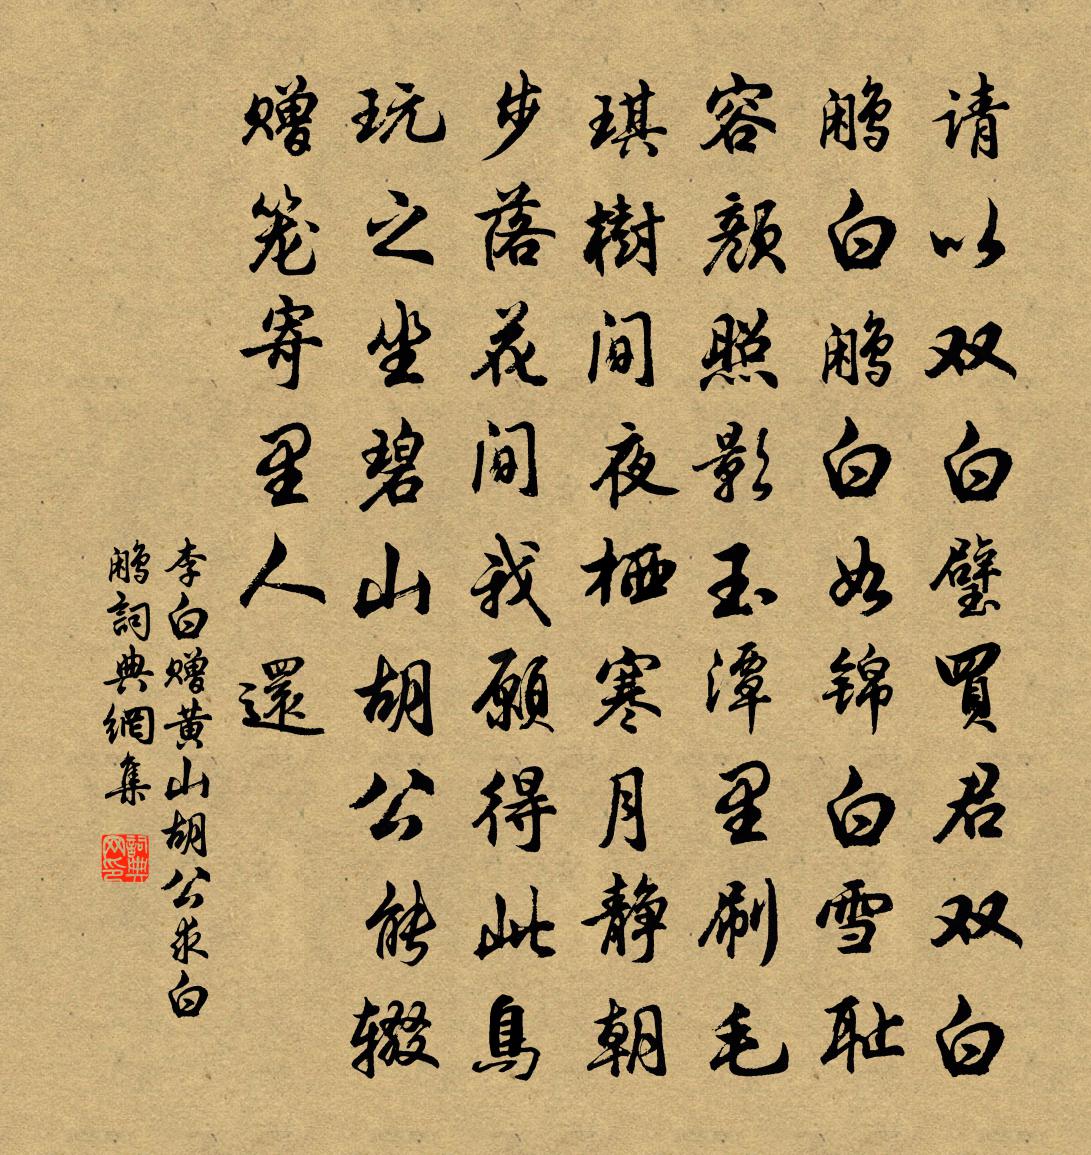 请以双白璧買君双白
鹇白鹇白如锦白雪耻
容颜照影玉潭里刷毛
琪樹間夜栖寒月静朝
步落花間我願得此鳥
玩之坐碧山胡公能辍
赠笼寄里人還
李白赠黄山胡公求白
鹇詞典網集
詞典网印